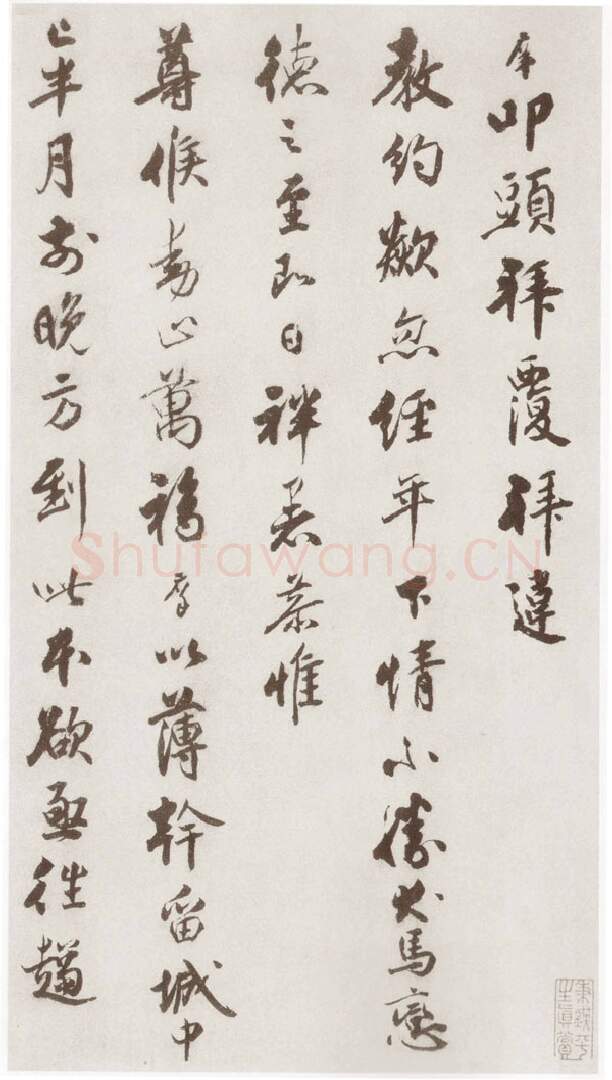 叩頭拜覆拜違
教約歘忽經年下情不勝犬馬戀
德之至即日袢暑恭惟
尊候動止萬福以薄幹留城中
已半月前晚方到此本欲亟往趨
Shufawang.CN